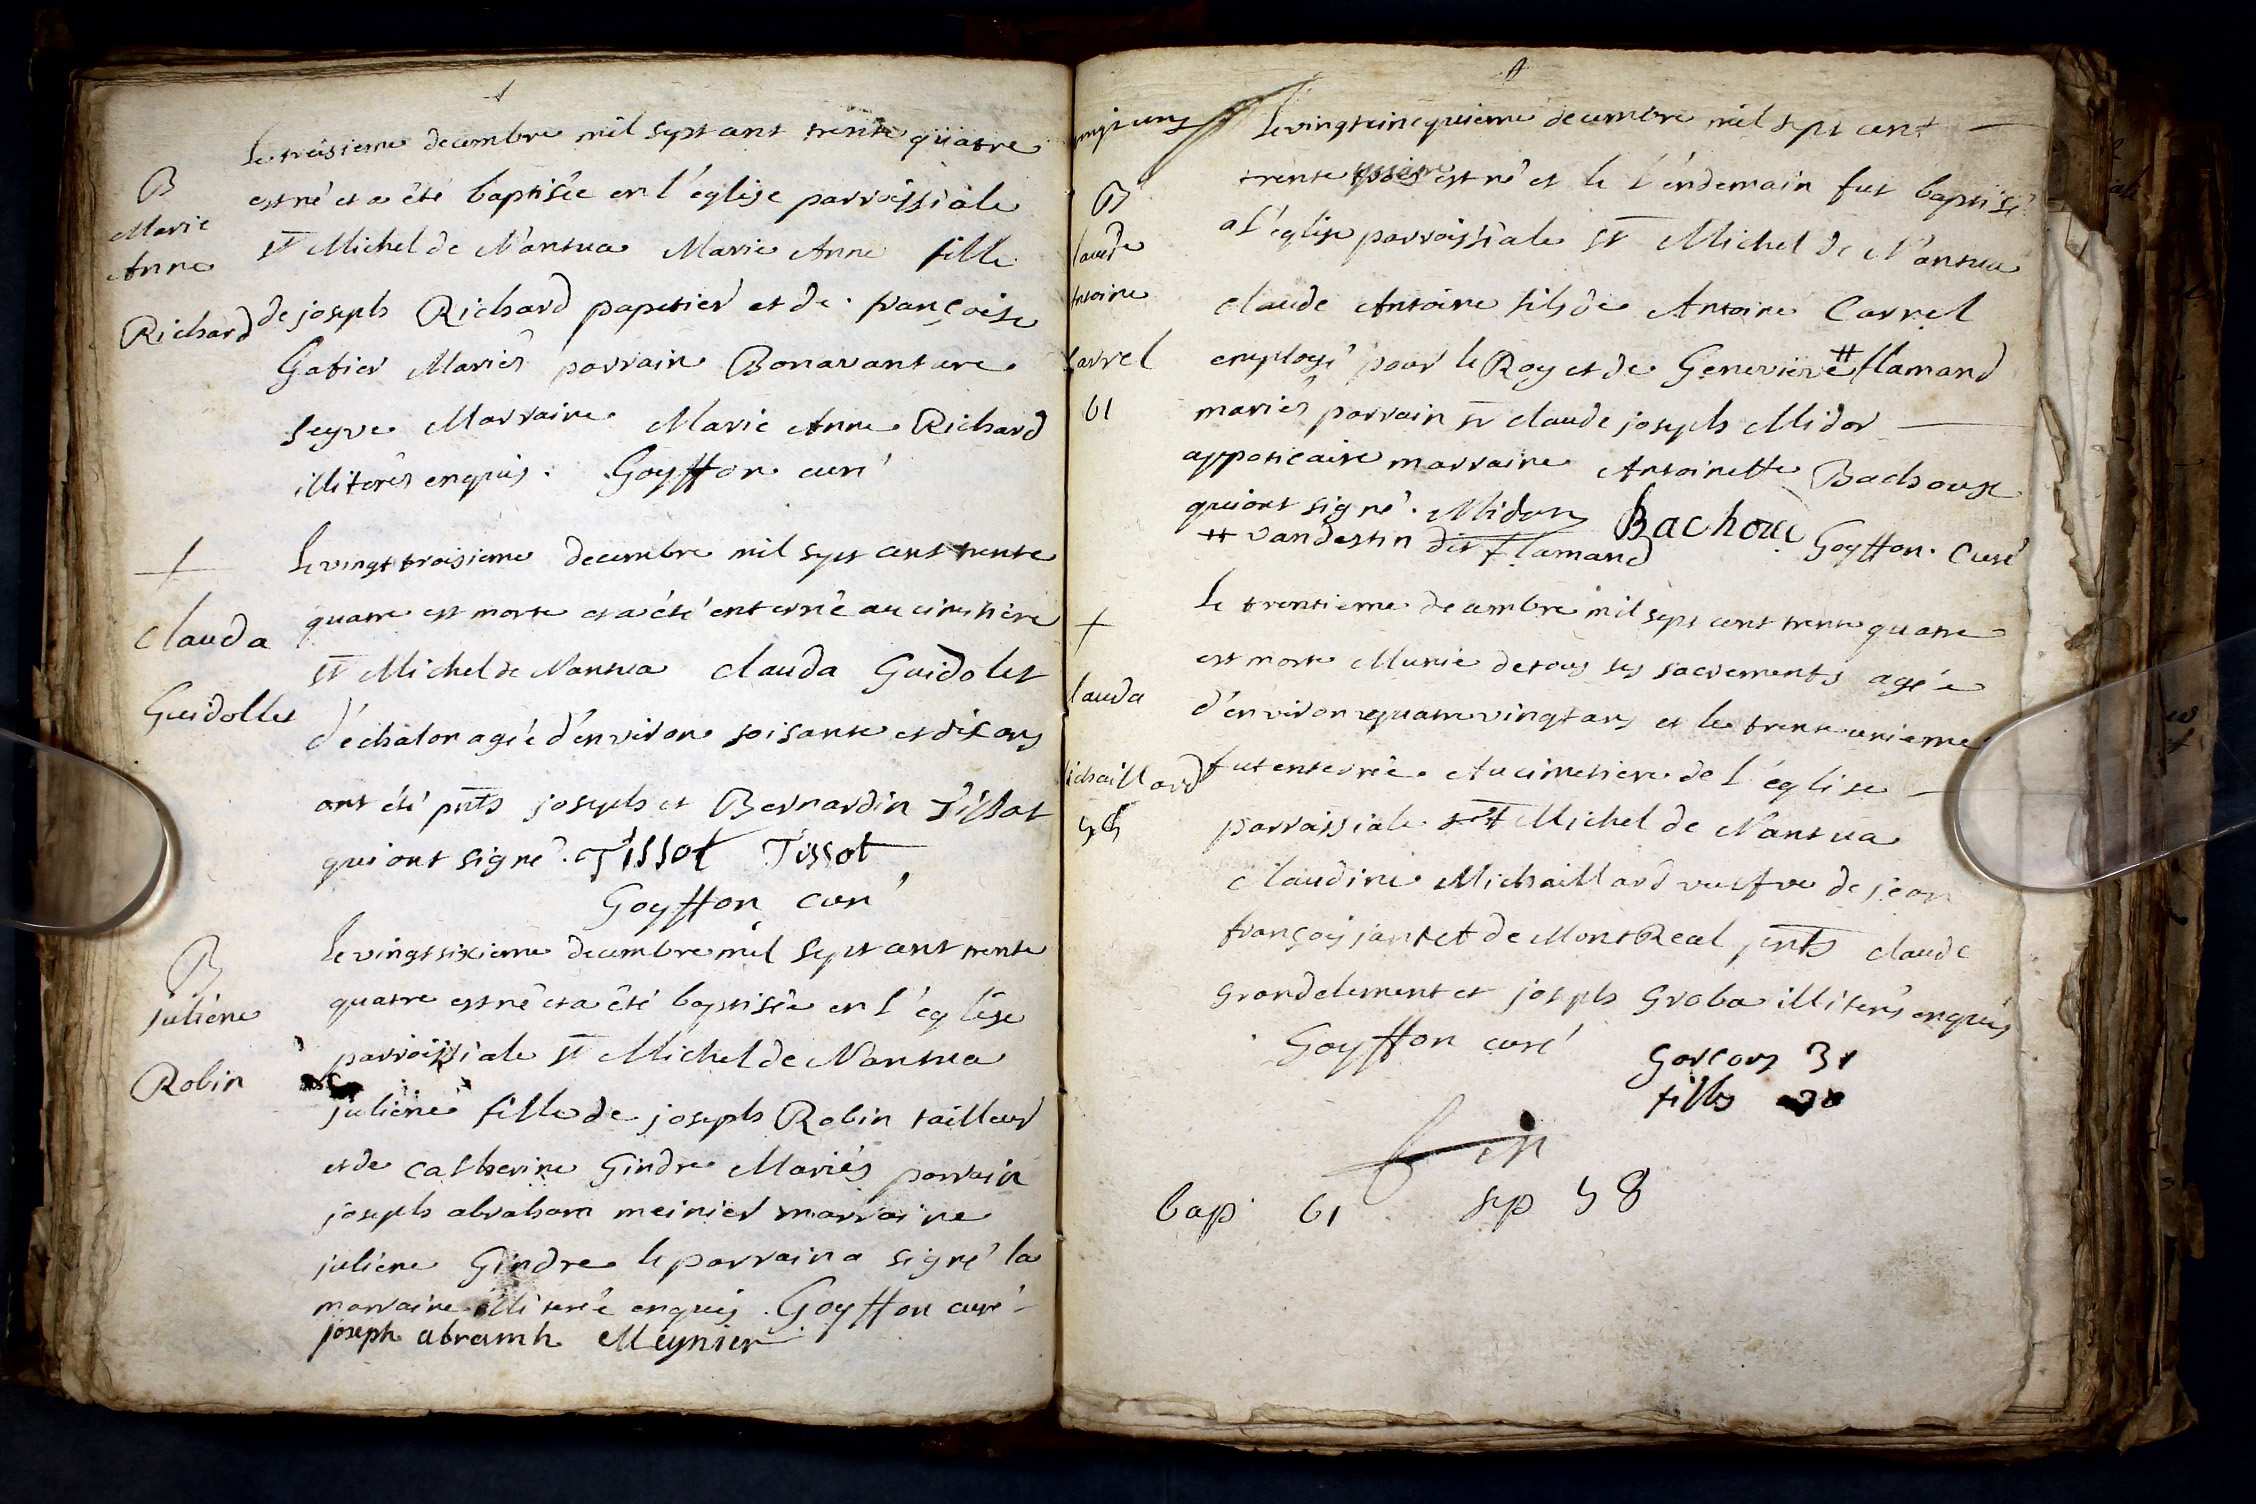 B
Marie
Anne
Richard
Le treisieme decembre mil sept cent trente quatre
est né et a été baptisée en l'eglise parroissiale
st Michel de Nantua Marie Anne fille
de joseph Richard papetier et de françoise
Gatier Mariés parrain Bonavanture
Seyve Marraine Marie Anne Richard
illiterés enquis. Goyffon curé
+
Clauda
Guidollet
Le vingt troisieme decembre mil sept cent trente
quatre est morte et a été enterrée au cimetiere
st Michel de Nantua Clauda Guidolet
d'échalon agée d'environ soisante et dix ans
ont été pnts joseph et Bernardin Tissot
qui ont signé. Tissot Tissot
Goyffon curé
B
juliene
Robin
Le vingt sixieme decembre mil sept cent trente
quatre est né et a été baptisée en l'église
parroissiale st Michel de Nantua
juliene fille de joseph Robin tailleur
et de Catherine Gindre Mariés parrain
joseph abraham meinier marraine
juliene Gindre le parrain a signé la
marraine illiterée enquis. Goyffon curé
joseph abramh Meynier
B
laude
Antoine
Carrel
61
Le vingt cinquieme decembre mil sept cent
trente est né et le l'éndemain fut baptisé
a l'église parroissiale st Michel de Nantua
Claude Antoine fils de Antoine Carrel
employé pour le Roy et de Genevieve # flamand
mariés parrain sr Claude joseph Midor
appoticaire marraine Antoinette Bachouse
qui ont signé. Midor Bachouse
# Vandestin dit flamand Goyffon. Curé
+
lauda
ichaillard
58
Le trentieme decembre mil sept cent trente quatre
est morte Munie de tous ses sacrements agée
d'environ quatre vingt ans et le trente unieme
fut enterrée Au cimetiere de l'église
parroissiale st Michel de Nantua
Claudine Michaillard veufve de jean
françois jantet de Mont Real pnts claude
Grandclement et joseph Groba illiterés enquis
Goyffon curé
Garcons 31
filles 30
fin
bap 61 sep 58